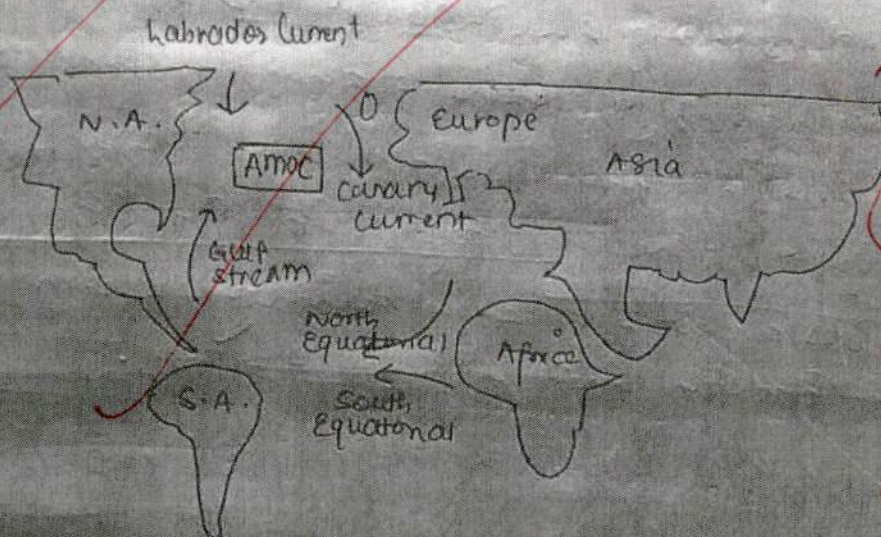 Labrador Current
N.A.
Europe
Asia
AMOC
Canary
Current
Gulf
stream
North
Equatorial
Africa
S.A.
South
Equatorial